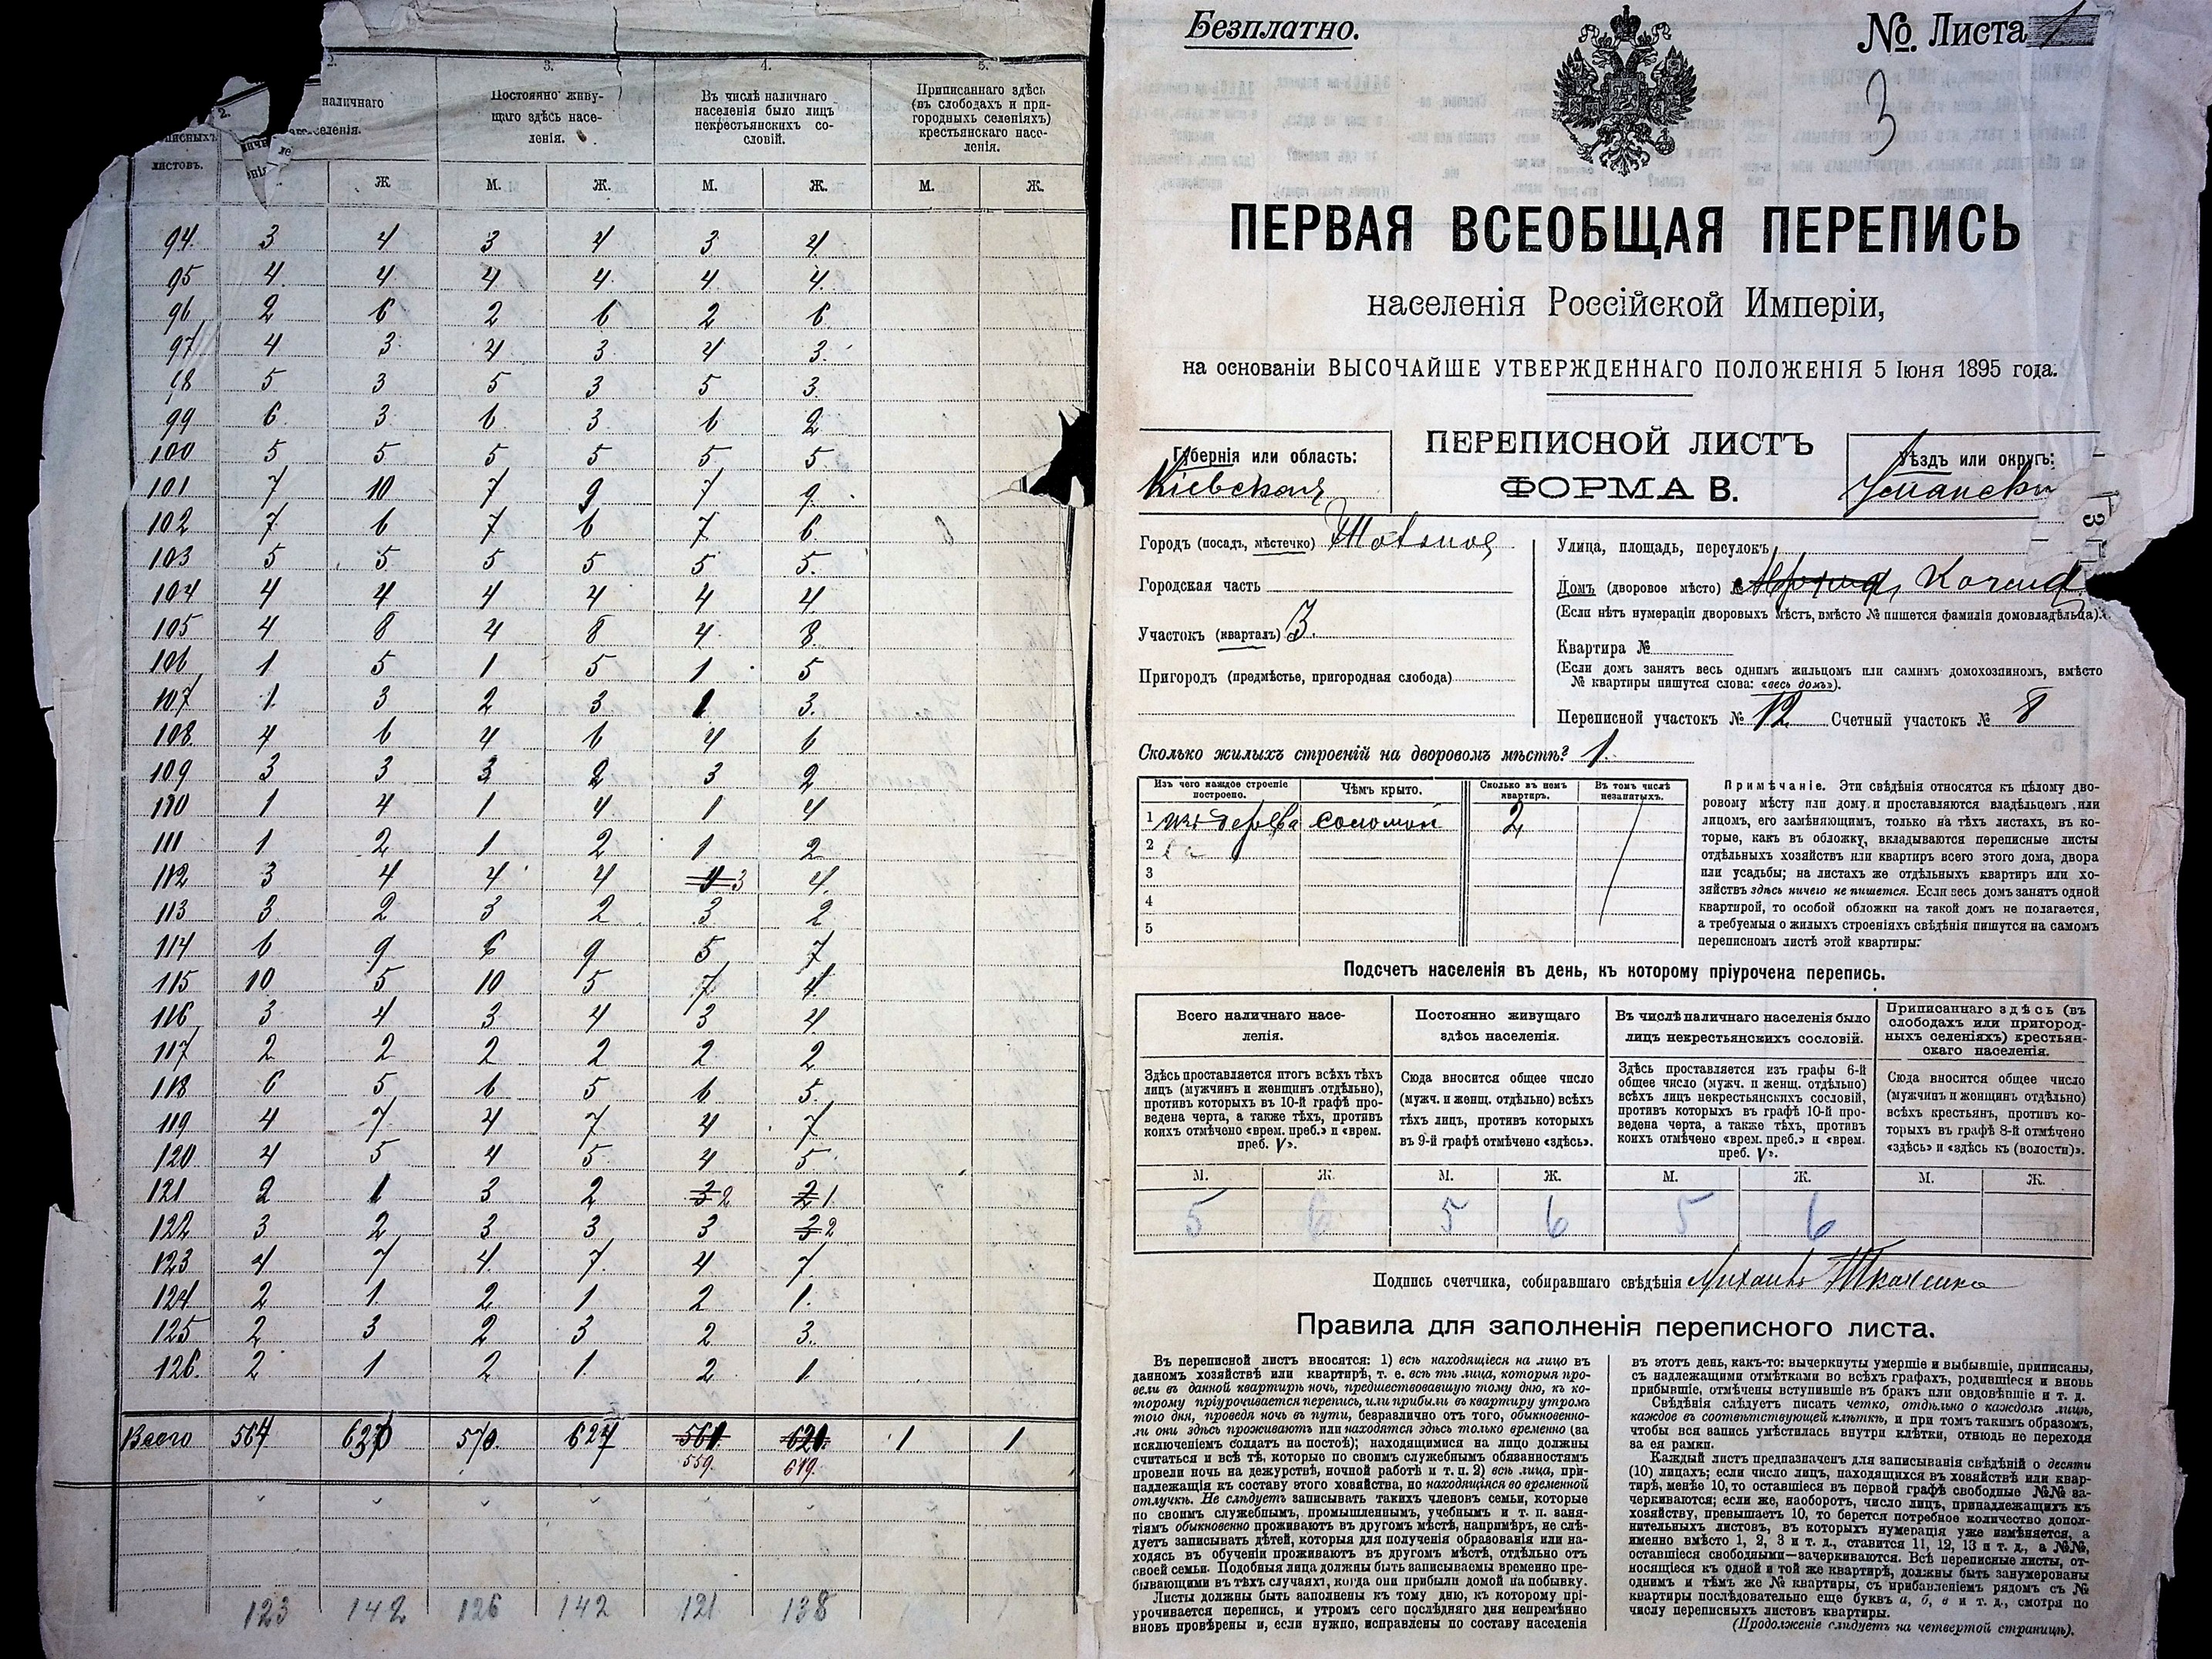 2. 3. 4. 5.
наличнаго
населенія.
листовъ.
Постоянно живу-
щаго здѣсь насе-
ленія.
Въ числѣ наличнаго
населенія было лицъ
некрестьянскихъ со-
словій.
Приписаннаго здѣсь
(въ слободахъ и при-
городныхъ селеніяхъ)
крестьянскаго насе-
ленія.
Ж М. Ж. М. Ж. М. Ж.
94. 3 4 3 4 3 4.
95 4. 4 4 4. 4 4.
96 2 6 2 6 2 6.
97 4 3. 4 3. 4 3.
98 5 3 5 3 5 3.
99 6. 3. 6 3. 6 2
100 5 5 5 5 5 5.
101 7 10 7 9 7 9.
102 7. 6 7 6 7 6.
103 5 5 5 5 5 5.
104 4 4 4 4 4 4.
105 4 8 4 8 4. 8.
106 1 5 1 5 1 5
107 1. 3 2 3 1. 3.
108. 4 6 4 6 4 6
109 3 3 3 2 3 2
110 1 4 1 4 1 4
111 1 2 1 2 1 2
112 3 4 4 4 4 3 4.
113 3 2 3 2 3 2
114 6 9 6 9 5 7
115 10 5 10 5 7 4.
116 3 4 3 4 3 4
117 2 2 2 2 2 2
118 6 5 6 5 6 5.
119 4 7 4 7 4 7
120 4 5 4 5. 4 5
121 2 1 3 2 3 2 2 1
122 3 2 3 3 3 3 2
123 4 7 4. 7. 4 7.
124 2 1. 2 1 2 1.
125 2 3 2 3 2 3.
126. 2 1 2 1. 2 1.
Всего 564 630 570. 627 561 621 1 1
559. 619.
123 142 126 142 121 138 1 1
Безплатно.
№. Листа 1
3
ПЕРВАЯ ВСЕОБЩАЯ ПЕРЕПИСЬ
населенія Россійской Имперіи,
на основаніи ВЫСОЧАЙШЕ УТВЕРЖДЕННАГО ПОЛОЖЕНІЯ 5 Іюня 1895 года.
Губернія или область:
Кіевская
ПЕРЕПИСНОЙ ЛИСТЪ
ФОРМА В.
Уѣздъ или округъ:
Уманскій
Городъ (посадъ, мѣстечко)
Городская часть
Участокъ (кварталъ) 3.
Пригородъ (предмѣстье, пригородная слобода)
Улица, площадь, переулокъ
Домъ (дворовое мѣсто) №
(Если нѣтъ нумераціи дворовыхъ мѣстъ, вмѣсто № пишется фамилія домовладѣльца).
Квартира №
(Если домъ занятъ весь однимъ жильцомъ или самимъ домохозяиномъ, вмѣсто
№ квартиры пишутся слова: «весь домъ»).
Переписной участокъ № 12 Счетный участокъ № 8
Сколько жилыхъ строеній на дворовомъ мѣстѣ? 1.
Изъ чего каждое строеніе
построено.
Чѣмъ крыто.
Сколько въ немъ
квартиръ.
Въ томъ числѣ
незанятыхъ.
1 изъ дерева соломой 2
2
3
4
5
Примѣчаніе. Эти свѣдѣнія относятся къ цѣлому дво-
ровому мѣсту или дому и проставляются владѣльцемъ или
лицомъ, его замѣняющимъ, только на тѣхъ листахъ, въ ко-
торые, какъ въ обложку, вкладываются переписные листы
отдѣльныхъ хозяйствъ или квартиръ всего этого дома, двора
или усадьбы; на листахъ же отдѣльныхъ квартиръ или хо-
зяйствъ здѣсь ничего не пишется. Если весь домъ занятъ одной
квартирой, то особой обложки на такой домъ не полагается,
а требуемыя о жилыхъ строеніяхъ свѣдѣнія пишутся на самомъ
переписномъ листѣ этой квартиры.
Подсчетъ населенія въ день, къ которому пріурочена перепись.
Всего наличнаго насе-
ленія.
Здѣсь проставляется итогъ всѣхъ тѣхъ
лицъ (мужчинъ и женщинъ отдѣльно),
противъ которыхъ въ 10-й графѣ про-
ведена черта, а также тѣхъ, противъ
коихъ отмѣчено «врем. преб.» и «врем.
преб. V».
Постоянно живущаго
здѣсь населенія.
Сюда вносится общее число
(мужч. и женщ. отдѣльно) всѣхъ
тѣхъ лицъ, противъ которыхъ
въ 9-й графѣ отмѣчено «здѣсь».
Въ числѣ наличнаго населенія было
лицъ некрестьянскихъ сословій.
Здѣсь проставляется изъ графы 6-й
общее число (мужч. и женщ. отдѣльно)
всѣхъ лицъ некрестьянскихъ сословій,
противъ которыхъ въ графѣ 10-й про-
ведена черта, а также тѣхъ, противъ
коихъ отмѣчено «врем. преб.» и «врем.
преб. V».
Приписаннаго здѣсь (въ
слободахъ или пригород-
ныхъ селеніяхъ) крестьян-
скаго населенія.
Сюда вносится общее число
(мужчинъ и женщинъ отдѣльно)
всѣхъ крестьянъ, противъ ко-
торыхъ въ графѣ 8-й отмѣчено
«здѣсь» и «здѣсь къ (волости)».
М. Ж. М. Ж. М. Ж. М. Ж.
5 6 5 6 5 6
Подпись счетчика, собиравшаго свѣдѣнія Михаилъ Ткаченко
Правила для заполненія переписного листа.
Въ переписной листъ вносятся: 1) всѣ находящіеся на лицо въ
данномъ хозяйствѣ или квартирѣ, т. е. всѣ тѣ лица, которыя про-
вели въ данной квартирѣ ночь, предшествовавшую тому дню, къ ко-
торому пріурочивается перепись, или прибыли въ квартиру утромъ
того дня, проведя ночь въ пути, безразлично отъ того, обыкновенно-
ли они здѣсь проживаютъ или находятся здѣсь только временно (за
исключеніемъ солдатъ на постоѣ); находящимися на лицо должны
считаться и всѣ тѣ, которые по своимъ служебнымъ обязанностямъ
провели ночь на дежурствѣ, ночной работѣ и т. п. 2) всѣ лица, при-
надлежащія къ составу этого хозяйства, но находящіяся во временной
отлучкѣ. Не слѣдуетъ записывать такихъ членовъ семьи, которые
по своимъ служебнымъ, промышленнымъ, учебнымъ и т. п. заня-
тіямъ обыкновенно проживаютъ въ другомъ мѣстѣ, напримѣръ, не слѣ-
дуетъ записывать дѣтей, которыя для полученія образованія или на-
ходясь въ обученіи проживаютъ въ другомъ мѣстѣ, отдѣльно отъ
своей семьи. Подобныя лица должны быть записываемы временно пре-
бывающими въ тѣхъ случаяхъ, когда они прибыли домой на побывку.
Листы должны быть заполнены къ тому дню, къ которому прі-
урочивается перепись, и утромъ сего послѣдняго дня непремѣнно
вновь провѣрены и, если нужно, исправлены по составу населенія
въ этотъ день, какъ-то: вычеркнуты умершіе и выбывшіе, приписаны,
съ надлежащими отмѣтками во всѣхъ графахъ, родившіеся и вновь
прибывшіе, отмѣчены вступившіе въ бракъ или овдовѣвшіе и т. д.
Свѣдѣнія слѣдуетъ писать четко, отдѣльно о каждомъ лицѣ,
каждое въ соотвѣтствующей клѣткѣ, и при томъ такимъ образомъ,
чтобы вся запись умѣстилась внутри клѣтки, отнюдь не переходя
за ея рамки.
Каждый листъ предназначенъ для записыванія свѣдѣній о десяти
(10) лицахъ; если число лицъ, находящихся въ хозяйствѣ или квар-
тирѣ, менѣе 10, то оставшіеся въ первой графѣ свободные №№ за-
черкиваются; если же, наоборотъ, число лицъ, принадлежащихъ къ
хозяйству, превышаетъ 10, то берется потребное количество допол-
нительныхъ листовъ, въ которыхъ нумерація уже измѣняется, а
именно вмѣсто 1, 2, 3 и т. д., ставится 11, 12, 13 и т. д., а №№,
оставшіеся свободными—зачеркиваются. Всѣ переписные листы, от-
носящіеся къ одной и той же квартирѣ, должны быть занумерованы
однимъ и тѣмъ же № квартиры, съ прибавленіемъ рядомъ съ №
квартиры послѣдовательно еще буквъ а, б, в и т. д., смотря по
числу переписныхъ листовъ квартиры.
(Продолженіе слѣдуетъ на четвертой страницѣ).